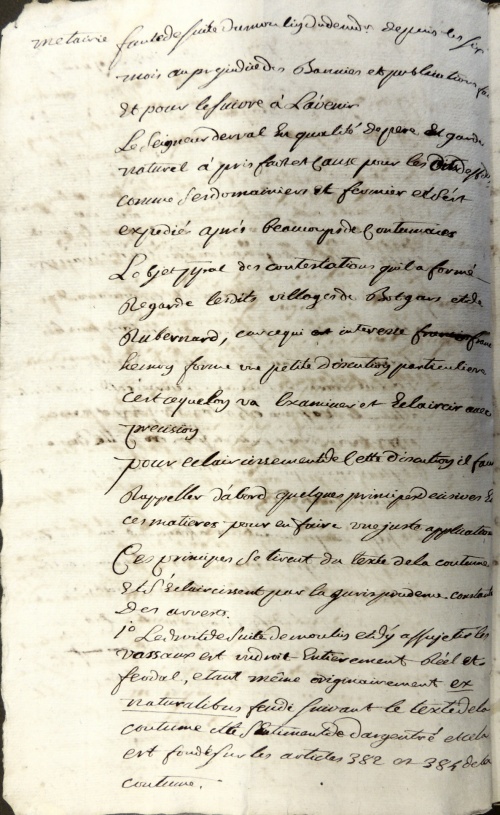 metairie faute de suite du moulin dudendo depuis les six
mois au prejudice des Bannies et publications
Et pour le suivre à L'avenir
Le Seigneur derval En qualité de pere Et garde
naturel à pris fait et Cause pour les
comme ses domainiers et fermier et s'est
expediés après beaucoups de Contumaces
L'objet des contestations qu'il a formé
Regarde lesdits villages de Botgars et de
Rubernard, car ce qui interesse
forme une petite Discution particuliere
C'est ce que lon va Examiner et Eclaircir avec
precision
pour eclaircissement de Cette discution il faut
Rappeller d'abord quelques principes decisives En
ces matieres pour en faire une juste application
Ces principes se tirent du texte de la coutume
Et S'Eclaircissent par la jurisprudence constante
Des arrests.
1o Le droit de suite de moulin et d'y assujetir les
vassaux est un droit Entierement Réel et
feodal, etant même originairement ex
naturalibus feudi suivant le texte de la
coutume et le Sentiment de d'argentré et cela
est fondé sur les articles 382 et 384 de la
coutume.